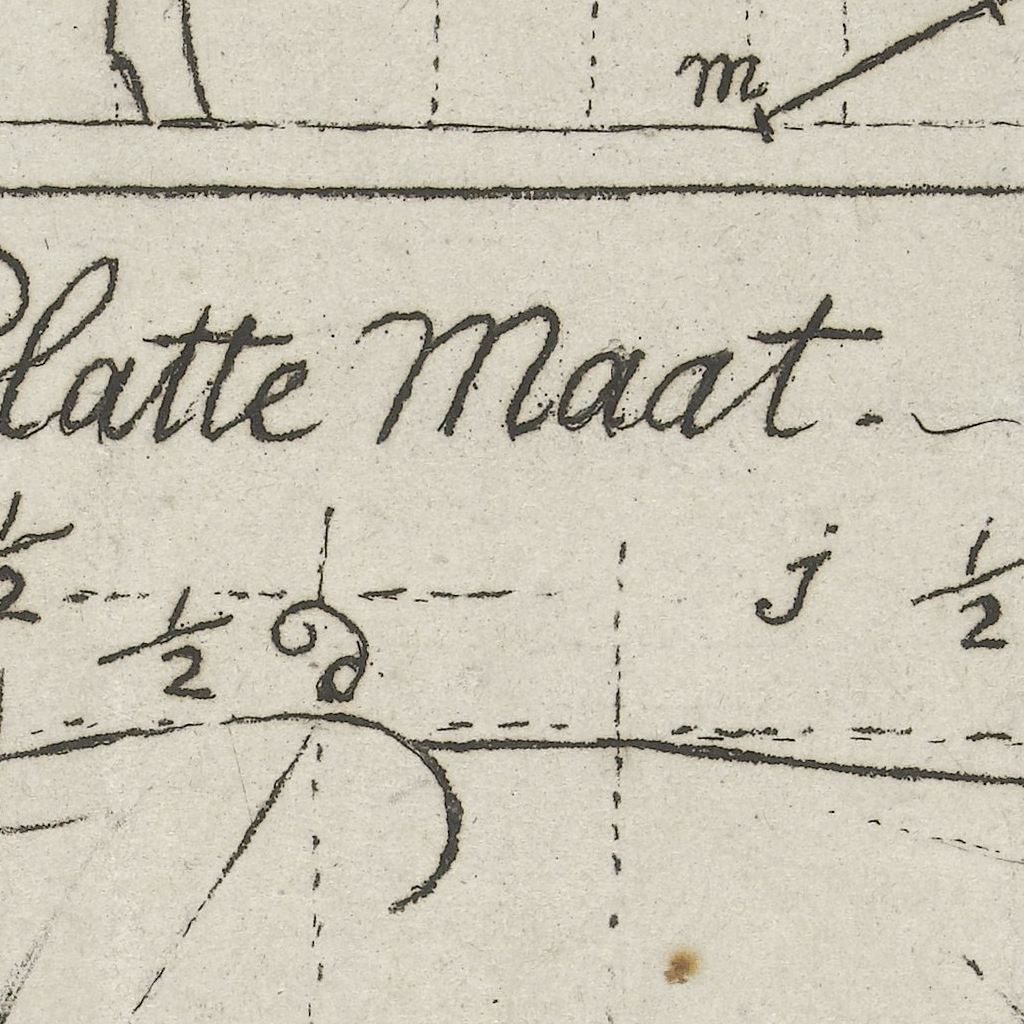 m
Platte Maat.
1/2 j 1/2
1/2